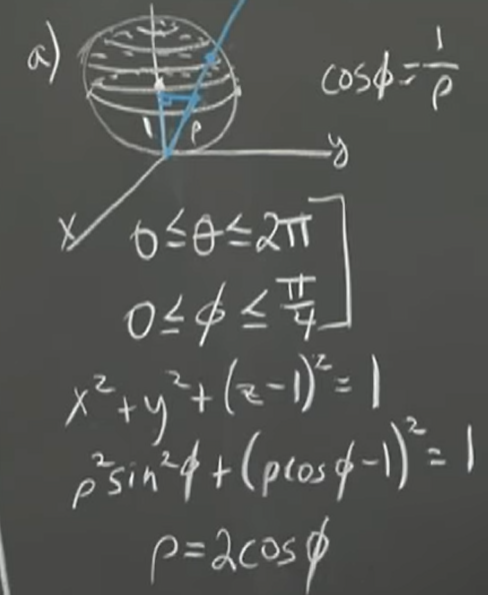 a)
cosφ = 1/ρ
1 ρ
y
x
0 ≤ θ ≤ 2π
0 ≤ φ ≤ π/4
x² + y² + (z-1)² = 1
ρ²sin²φ + (ρcosφ-1)² = 1
ρ = 2cosφ